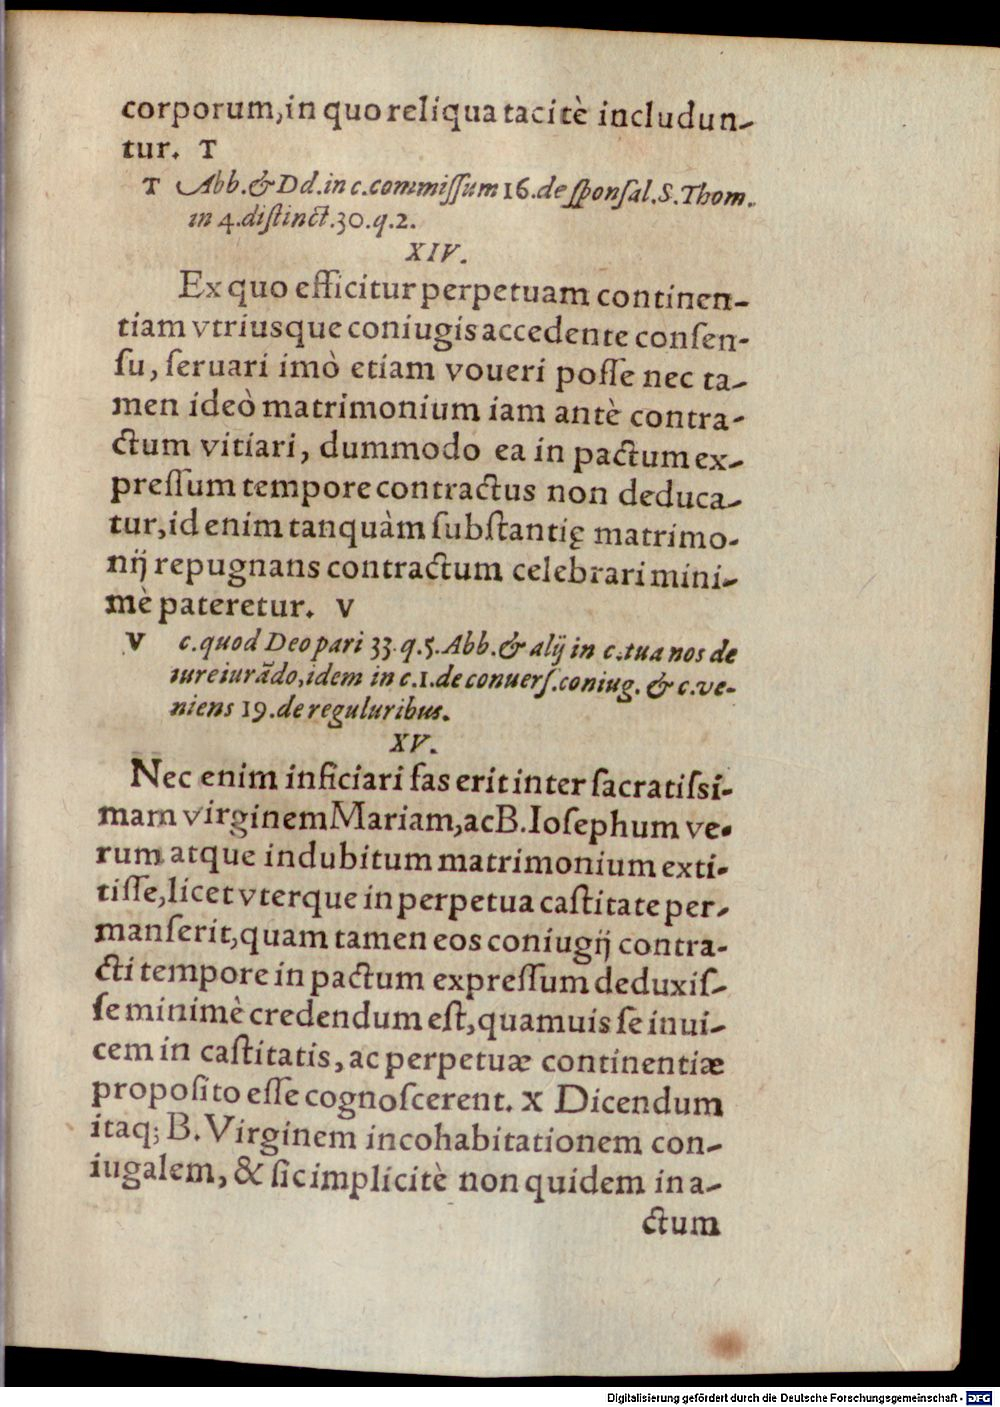 corporum,in quo reliqua tacitè includun-
tur. T
T Abb.& Dd.in c.commiſſum 16.de ſponſal.S.Thom.
in 4.diſtinct.30.q.2.
XIV.
Ex quo efficitur perpetuam continen-
tiam vtriusque coniugis accedente conſen-
ſu, ſeruari imò etiam voueri poſſe nec ta-
men ideò matrimonium iam antè contra-
ctum vitiari, dummodo ea in pactum ex-
preſſum tempore contractus non deduca-
tur,id enim tanquàm ſubſtantię matrimo-
nij repugnans contractum celebrari mini-
mè pateretur. V
V c.quod Deo pari 33.q.5.Abb.& alij in c.tua nos de
iureiurādo,idem in c.1.de conuerſ.coniug. & c.ve-
niens 19.de reguluribus.
XV.
Nec enim inficiari fas erit inter ſacratiſsi-
mam virginem Mariam,ac B.Ioſephum ve-
rum atque indubitum matrimonium exti-
tiſſe,licet vterque in perpetua caſtitate per-
manſerit,quam tamen eos coniugij contra-
cti tempore in pactum expreſſum deduxiſ-
ſe minimè credendum eſt,quamuis ſe inui-
cem in caſtitatis, ac perpetuæ continentiæ
propoſito eſſe cognoſcerent. X Dicendum
itaq; B. Virginem in cohabitationem con-
iugalem, & ſic implicitè non quidem in a-
ctum
Digitalisierung gefördert durch die Deutsche Forschungsgemeinschaft - DFG